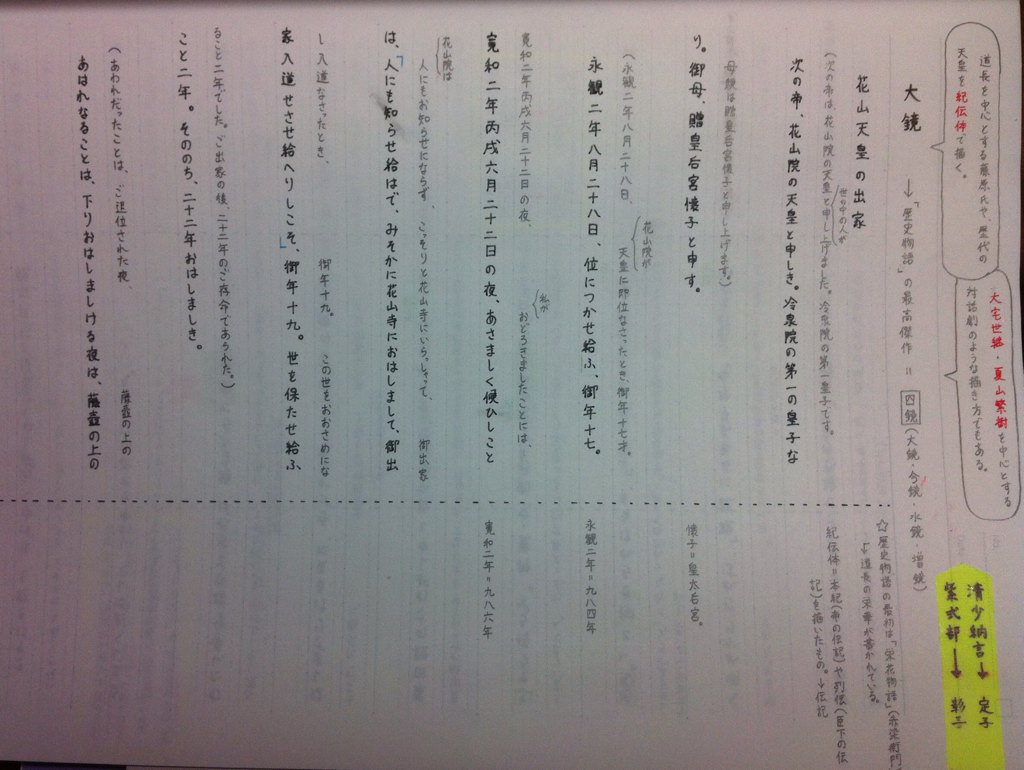 清少納言→定子
紫式部→彰子
大宅世継・夏山繁樹を中心とする
対話劇のような描き方でもある。
道長を中心とする藤原氏や、歴代の
天皇を紀伝体で描く。
大鏡 →「歴史物語」の最高傑作 = 四鏡(大鏡・今鏡・水鏡・増鏡)
☆歴史物語の最初は「栄花物語」(赤染衛門)
↓道長の栄華が書かれている。
花山天皇の出家
世の中の人が
(次の帝は、花山院の天皇と申し上げました。冷泉院の第一皇子です。
次の帝、花山院の天皇と申しき。冷泉院の第一の皇子な
紀伝体=本紀(帝の伝記)や列伝(臣下の伝
記)を描いたもの。→伝記
母親は贈皇后宮懐子と申し上げます。)
り。御母、贈皇后宮懐子と申す。
懐子=皇太后宮。
花山院が
(永観二年八月二十八日、天皇に即位なさったとき、御年十七才。
永観二年八月二十八日、位につかせ給ふ、御年十七。
永観二年=九八四年
私が
寛和二年丙戌六月二十二日の夜、おどろきましたことには、
寛和二年丙戌六月二十二日の夜、あさましく候ひしこと
寛和二年=九八六年
花山院は
人にもお知らせにならず、こっそりと花山寺にいらっしゃって、御出家
は、「人にも知らせ給はで、みそかに花山寺におはしまして、御出
し入道なさったとき、御年十九。この世をおおさめにな
家入道せさせ給へりしこそ、」御年十九。世を保たせ給ふ
ること二年でした。ご出家の後、二十二年のご存命であられた。)
こと二年。そののち、二十二年おはしましき。
(あわれだったことは、ご退位された夜、藤壺の上の
あはれなることは、下りおはしましける夜は、藤壺の上の